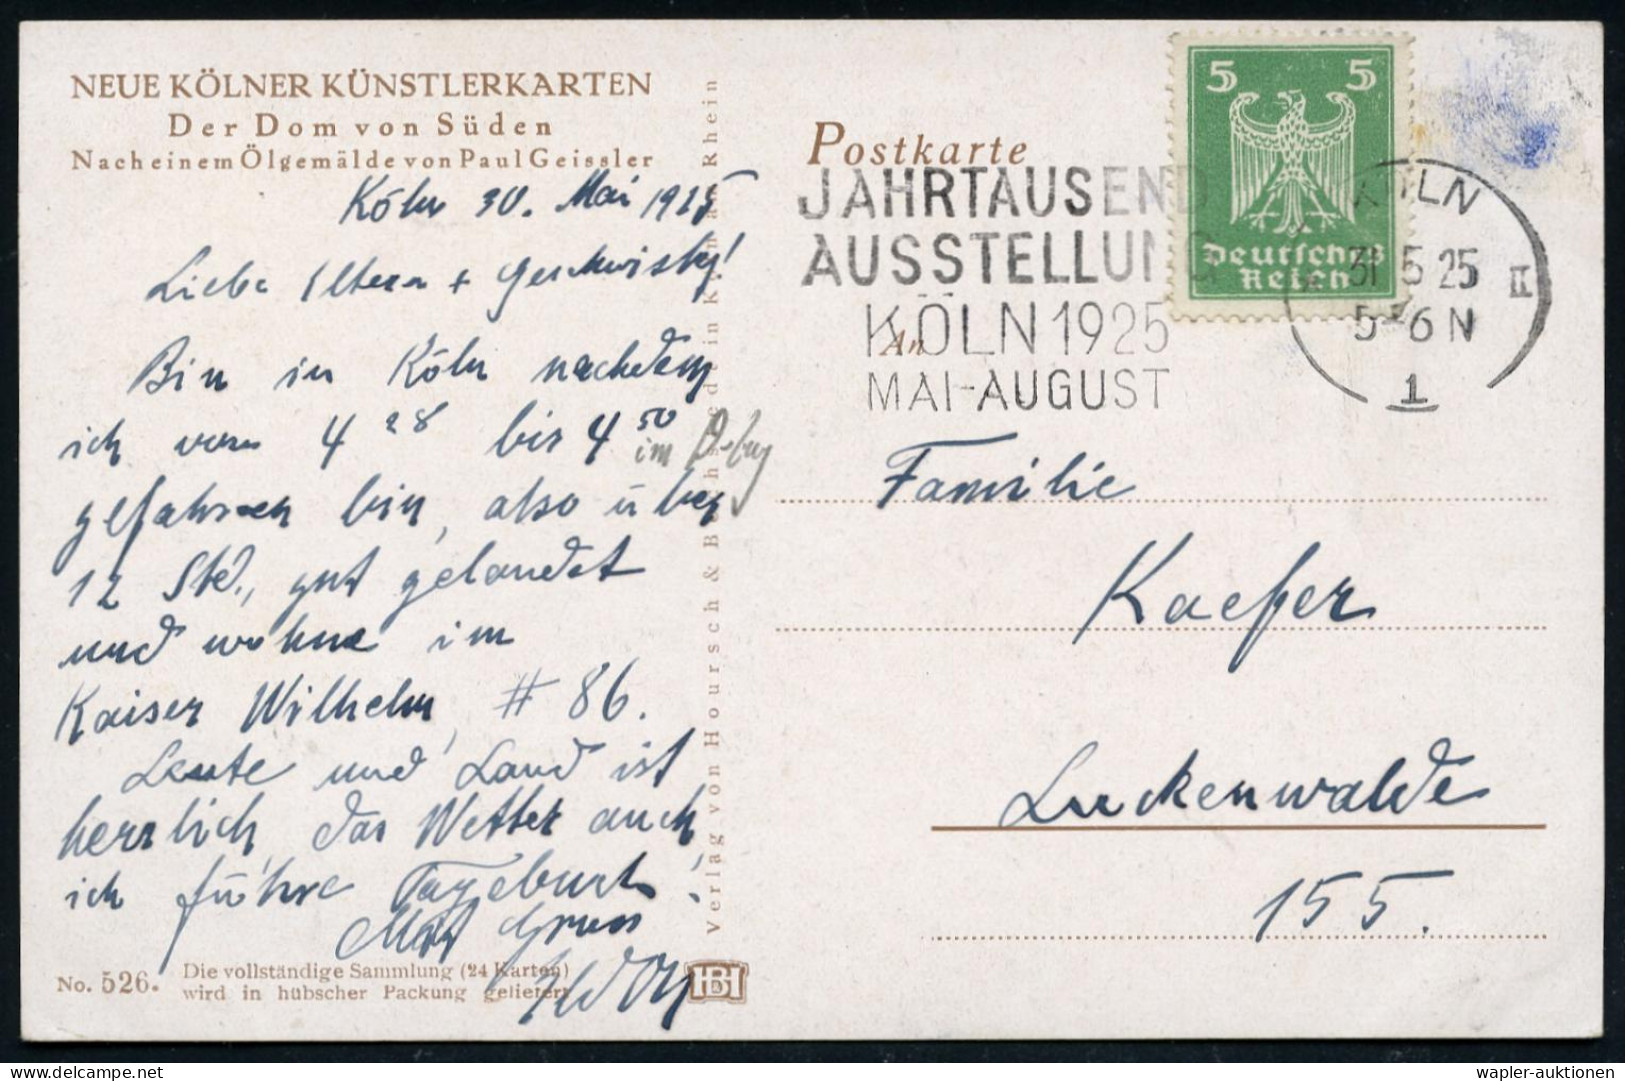 NEUE KÖLNER KÜNSTLERKARTEN
Der Dom von Süden
Nach einem Ölgemälde von Paul Geissler
Köln 30. Mai 1925
Liebe Eltern + Geschwister!
Bin in Köln nachdem
ich von 4 28 bis 4 50 im
gefahren bin, also über
12 Std., gut gelandet
und wohne im
Kaiser Wilhelm, # 86.
Leute und Land ist
herrlich, das Wetter auch,
ich führe Tagebuch!
Gruss
No. 526.
Die vollständige Sammlung (24 Karten)
wird in hübscher Packung geliefert
Verlag von Hoursch & Bechstedt in Köln am Rhein
HB
Postkarte
An
JAHRTAUSEND
AUSSTELLUNG
KÖLN 1925
MAI-AUGUST
5 5
Deutsches
Reich
KÖLN
31 5 25
5-6 N
II
1
Familie
Kaefer
Luckenwalde
155.
wapler-auktionen